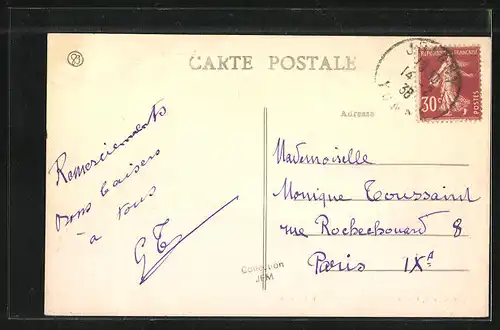 CARTE POSTALE
REPUBLIQUE FRANÇAISE
30c
POSTES
38
Adresse
Remerciements
Bons baisers
à tous
GT
Mademoiselle
Monique Toussaint
rue Rochechouard 8
Paris IXe
Collection
JFM